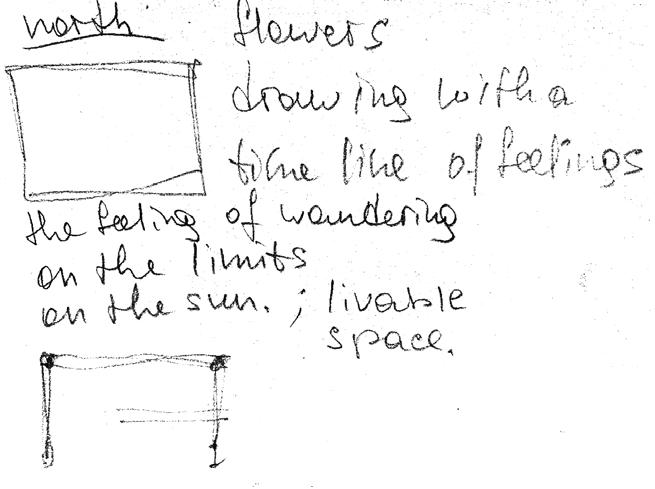 north
flowers
drawing with a
time line of feelings
the feeling of wandering
on the limits
on the sun. ; livable
space.